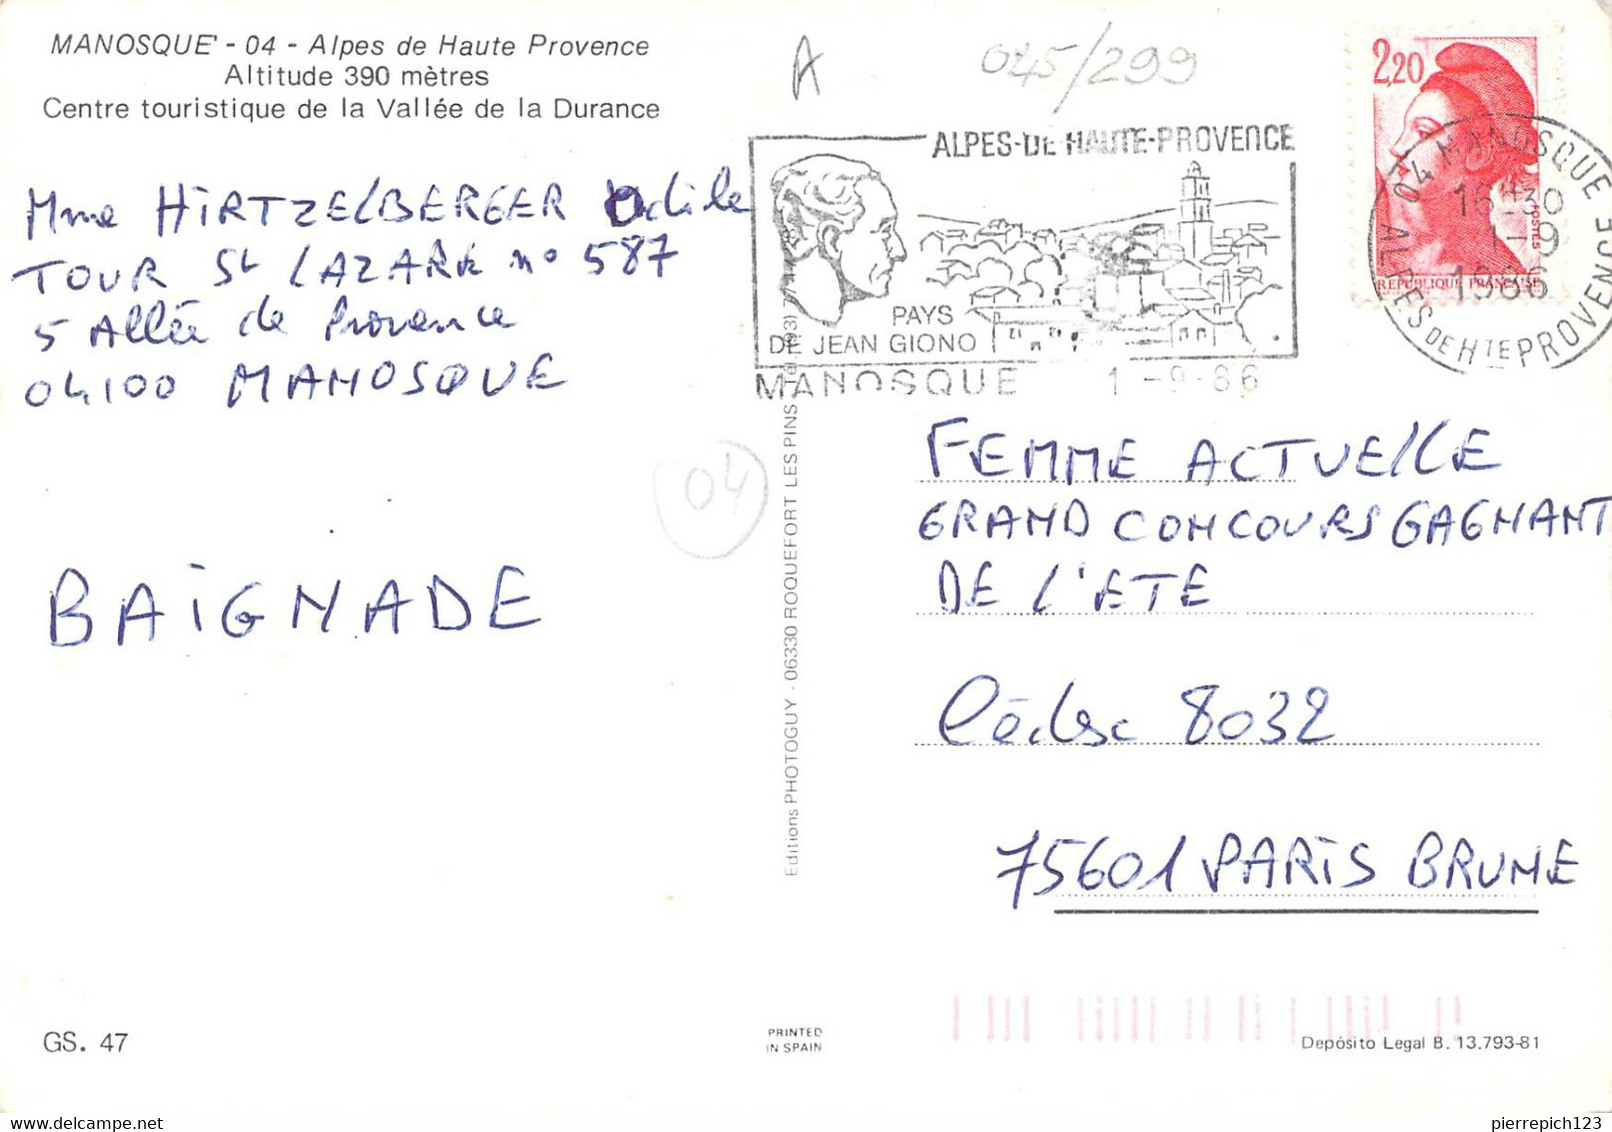 MANOSQUE - 04 - Alpes de Haute Provence
Altitude 390 mètres
Centre touristique de la Vallée de la Durance
Mme HIRTZELBERGER Odile
TOUR St LAZARE no 587
5 Allée de Provence
04100 MANOSQUE
BAIGNADE
04
A
045/299
ALPES-DE-HAUTE-PROVENCE
PAYS
DE JEAN GIONO
MANOSQUE 1-9-86
2,20
POSTES
REPUBLIQUE FRANÇAISE
04 MANOSQUE
15H30
1-9
1986
ALPES DE HTE PROVENCE
FEMME ACTUELLE
GRAND CONCOURS GAGNANT
DE L'ETE
Cédex 8032
75601 PARIS BRUNE
Editions PHOTOGUY - 06330 ROQUEFORT LES PINS
GS. 47
PRINTED
IN SPAIN
Depósito Legal B. 13.793-81
delcampe.net
pierrepich123